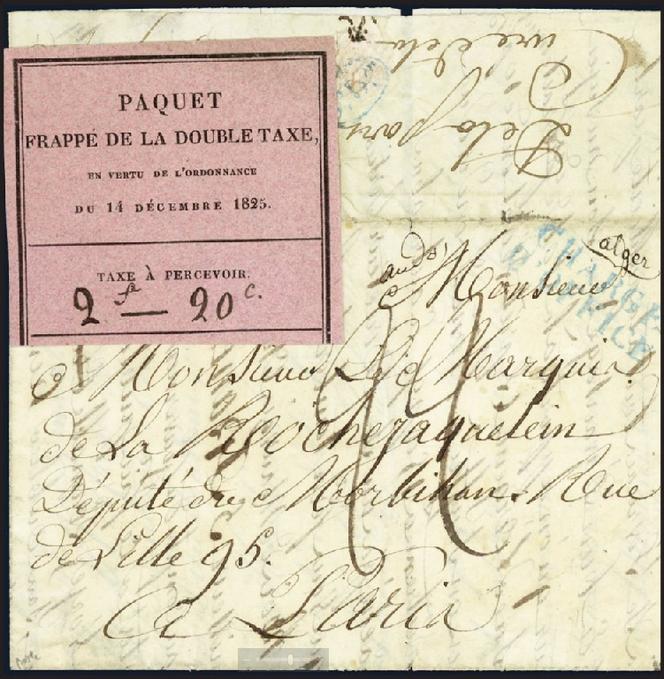 PAQUET
FRAPPÉ DE LA DOUBLE TAXE,
EN VERTU DE L'ORDONNANCE
DU 14 DÉCEMBRE 1825.
TAXE À PERCEVOIR.
2 fs — 20 c.
De la part
Curé de la
alger
CHARGE
Monsieur
à Monsieur Le Marquis
de La Rocheraquelein
Député du Morbihan. Rue
de Lille 95.
à Paris